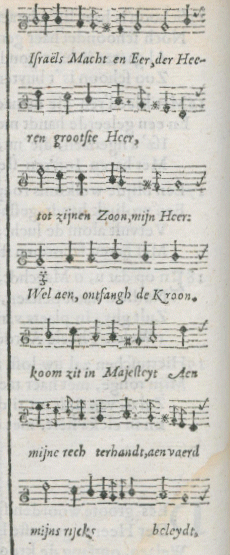 Israëls Macht en Eer, der Hee-
ren grootste Heer,
tot zijnen Zoon, mijn Heer:
Wel aen, ontfangh de Kroon.
koom zit in Majesteyt Aen
mijne rech terhandt, aenvaerd
mijns rijcks beleydt,